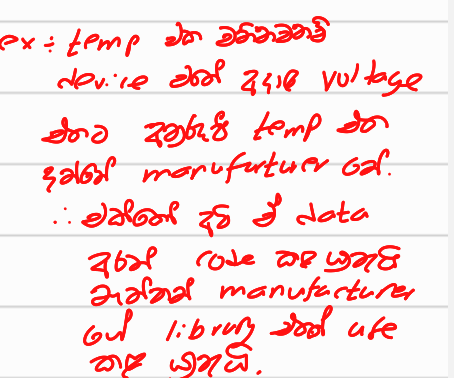 ex : temp එක මනිනවනම්
device එකේ අදාළ voltage
එකට අනුරූප temp එක
දන්නේ manufacturer ගේ.
∴ එක්කෝ අපි ඒ data
අරන් code කළ යුතුයි
නැත්නම් manufacturer
ගේ library එකක් use
කළ යුතුයි.